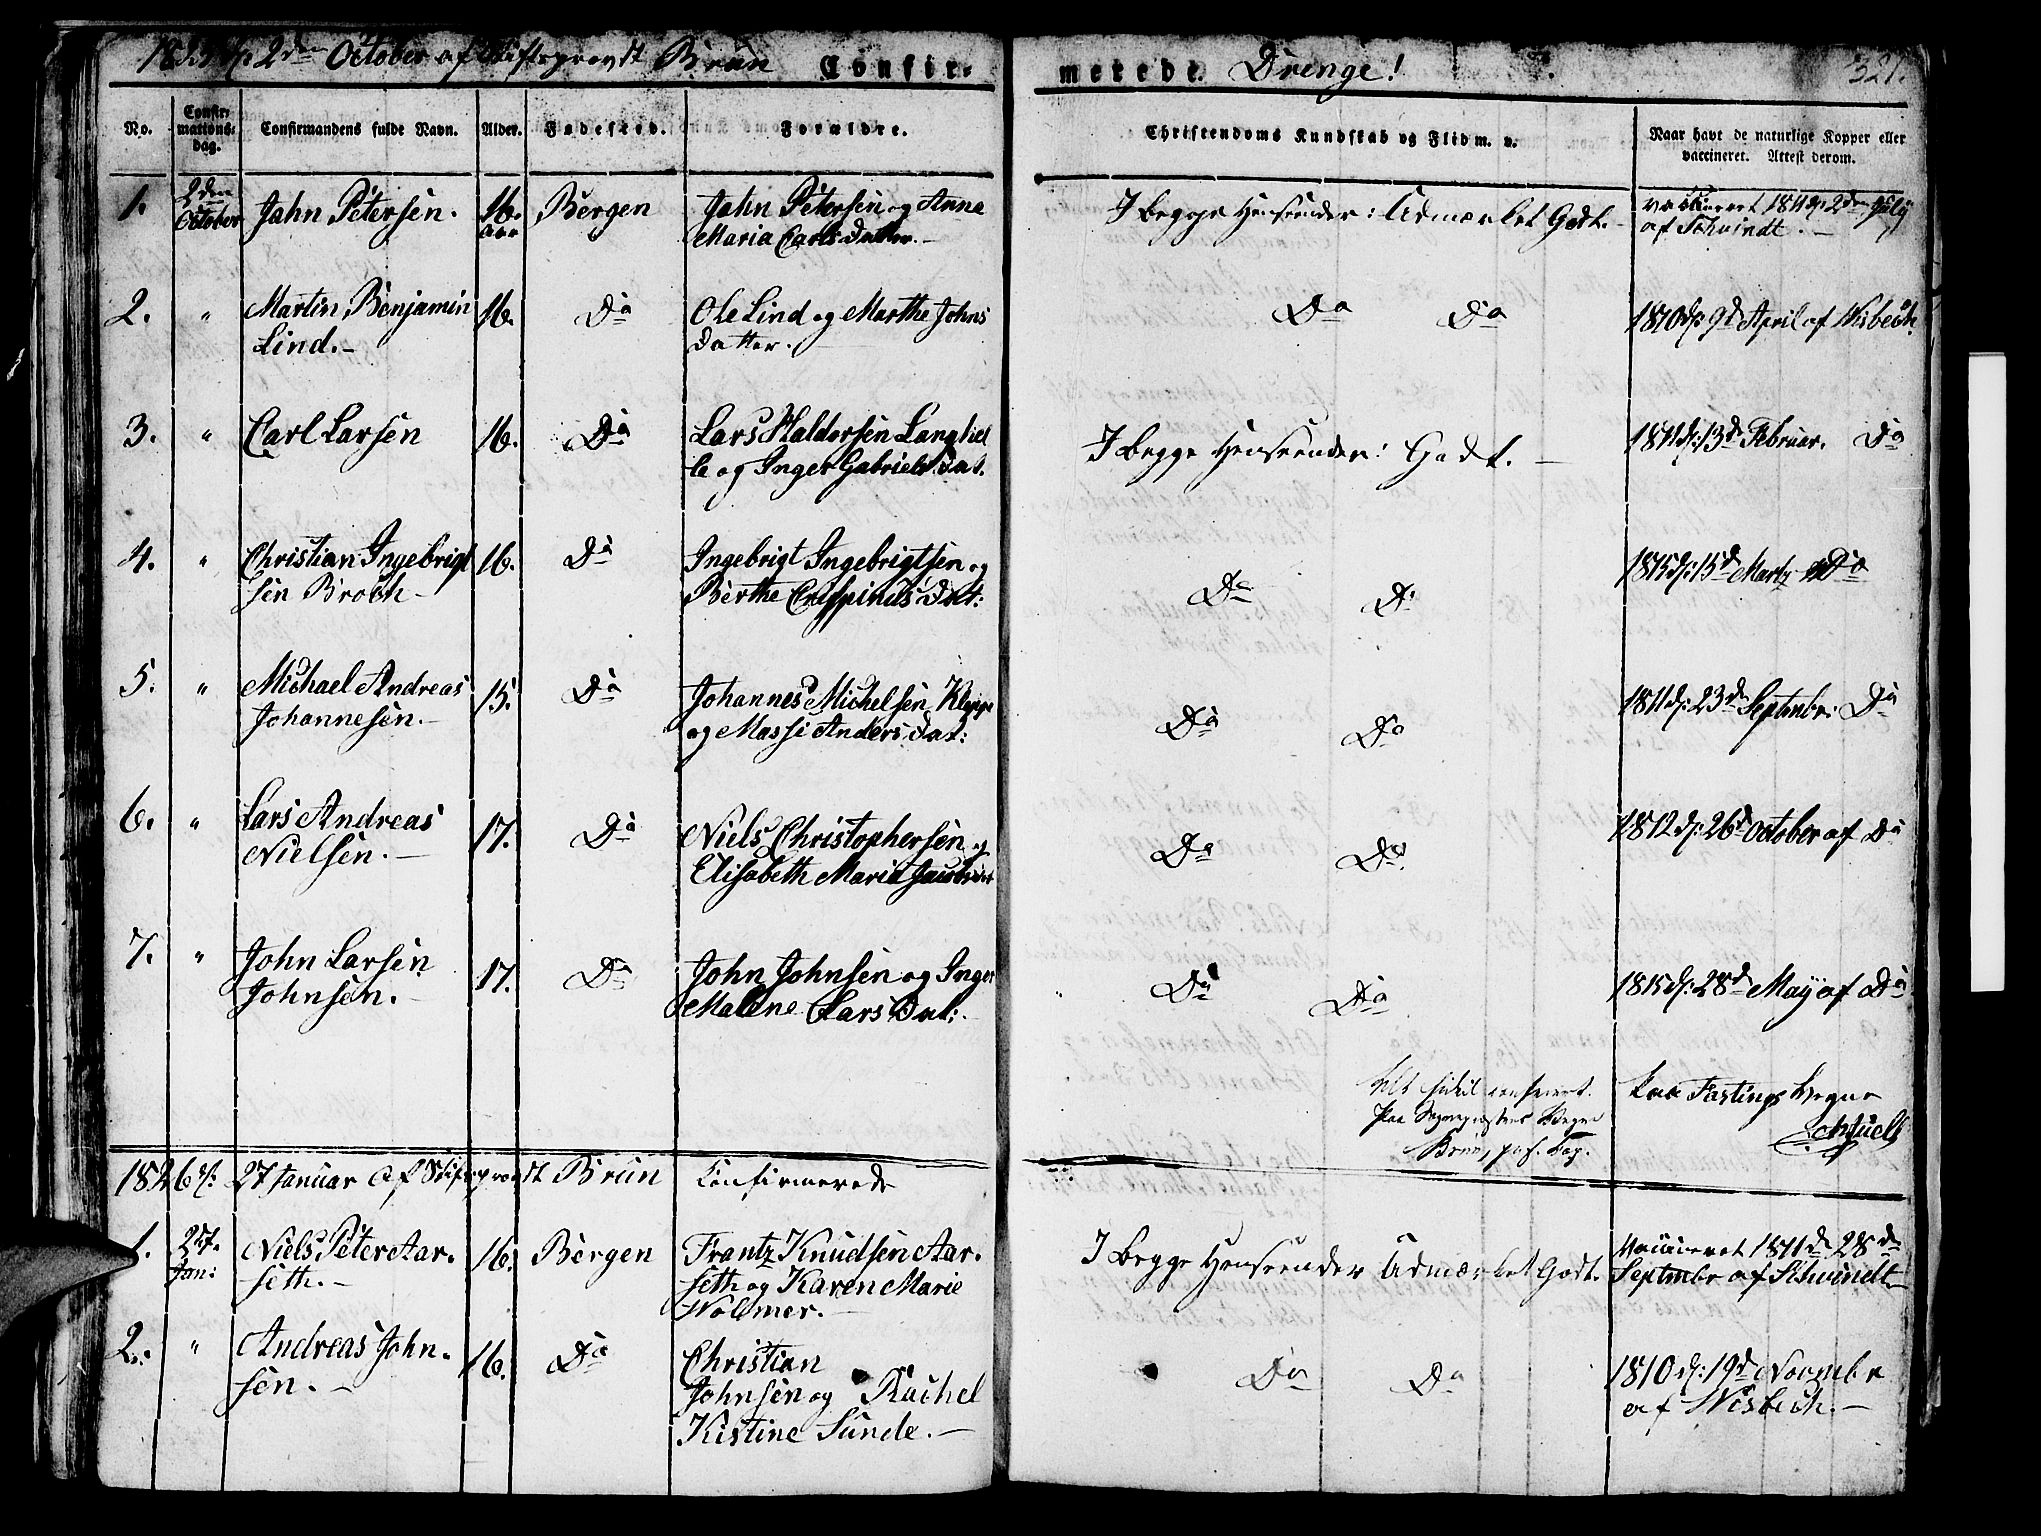 1825 d: 2den October af Stiftsprovst Brun Confir-
merede. Drenge!
321.
No.
Confir-
mations-
dag.
Confirmandens fulde Navn.
Alder.
Fødested.
Forældre.
Christendoms Kundskab og Flid m. v.
Naar havt de naturlige Kopper eller
vaccineret. Attest derom.
1.
2den
October
Jahn Petersen.
16.
Aar
Bergen
Jahn Petersen og Anna
Maria Carls Datter.
I begge Henseender: Udmærket Godt.
vaccineret 1811 d: 2den July
af Schvindt.
2.
"
Martin Benjamin
Lind.
16.
Do
Ole Lind og Marthe Johns
Datter.
Do Do
1810 d: 9d April af Wisbech.
3.
"
Carl Larsen
16.
Do
Lars Haldorsen Langhel
le og Inger Gabriels Dat.
I begge Henseender: Godt.
1811 d: 13d Februar. Do
4.
"
Christian Ingebrigt
sen Broch
16.
Do
Ingebrigt Ingebrigtsen og
Berthe Crispinus Dat:
Do Do
1815 d: 15d Martz Do
5.
"
Michael Andreas
Johannesen.
15.
Do
Johannes Michelsen Kleppe
og Massi Anders Dat:
Do Do
1811 d: 23d Septmbr: Do
6.
"
Lars Andreas
Nielsen.
17.
Do
Niels Christophersen og
Elisabeth Maria Jacobs Dat
Do Do
1812 d: 26d October af Do
7.
"
John Larsen
Johnsen.
17.
Do
John Johnsen og Inger
Malene Lars Dat:
Do Do
1815 d: 28d May af Do
Paa Vegne
Brun,
Paa Fastings Vegne
1826 d: 27 Januar af Stiftsprovst Brun Confirmerede
1.
27.
Jan:
Niels Peter Aar-
seth.
16.
Bergen
Frantz Knudsen Aar-
seth og Karen Marie
Wolmer.
I begge Henseender Udmærket Godt.
Vaccineret 1811 d 28de
Septmbr af Schvindt
2.
"
Andreas John-
sen.
16.
Do
Christian
Johnsen og Rachel
Kistine Sunde.
Do Do
1810 d: 19d Novmbr
af Wisbech.